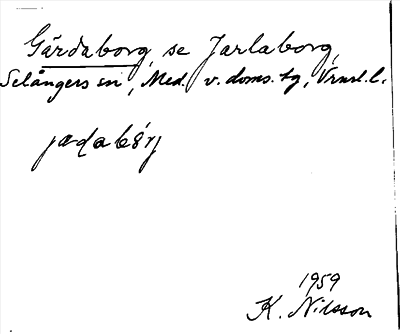 Gärdaborg, se Jarlaborg,
Selångers sn, Med. v. doms. tg, Vrnrl. l.
1959
K. Nilsson